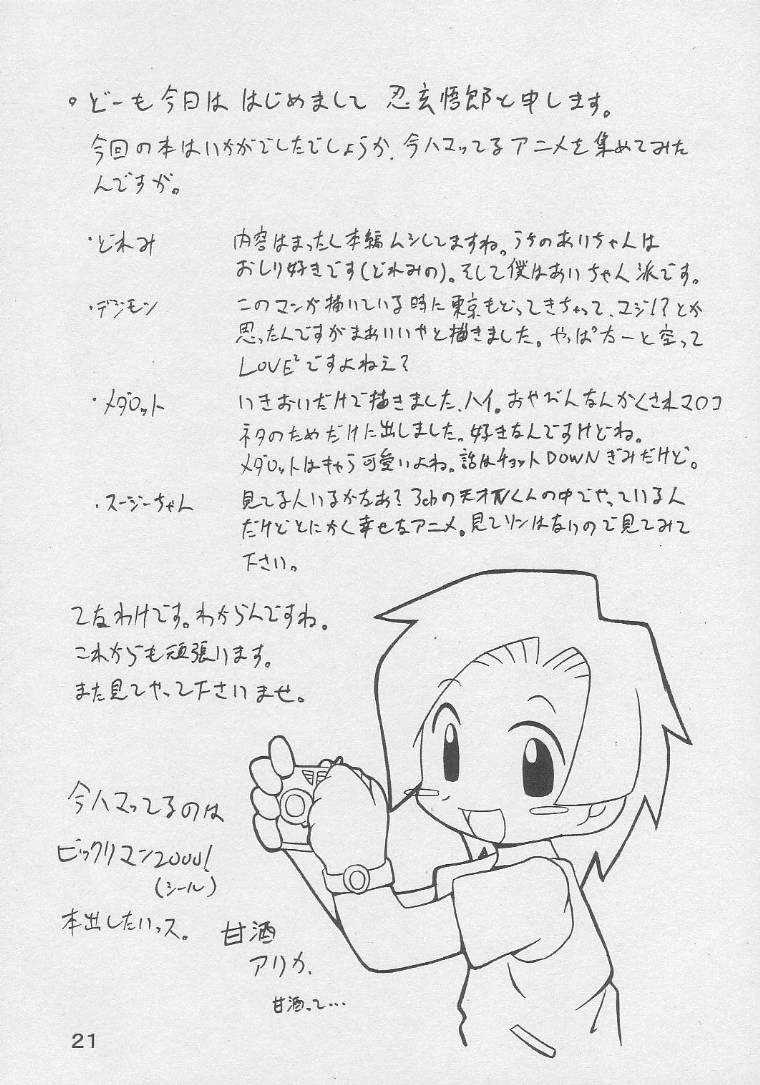 。どーも今日は はじめまして 忍玄悟郎と申します。
今回の本はいかがでしたでしょうか、今ハマッてるアニメを集めてみた
んですが。
・どれみ 内容はまったし本編ムシしてますね。うちのあいちゃんは
おしり好きです(どれみの)。そして僕はあいちゃん派です。
・デジモン このマンガ描いている時に東京もどってきちゃって、マジ!?とか
思ったんですがまあいいやと描きました。やっぱ太一と空って
LOVE²ですよねえ?
・メダロット いきおいだけで描きました、ハイ。おやびんなんかくされマロコ
ネタのためだけに出しました。好きなんですけどね。
メダロットはキャラ可愛いよね。話はチョットDOWNぎみだけど。
・スージーちゃん 見てる人いるかなあ? 3chの天才くんの中でやっているん
だけどとにかく幸せなアニメ。見てソンはないので見てみて
下さい。
てなわけです。わからんですね。
これからも頑張います。
また見てやって下さいませ。
今ハマッてるのは
ビックリマン2000!
(シール)
本出したいっス。
甘酒
アリカ、
甘酒って…
21